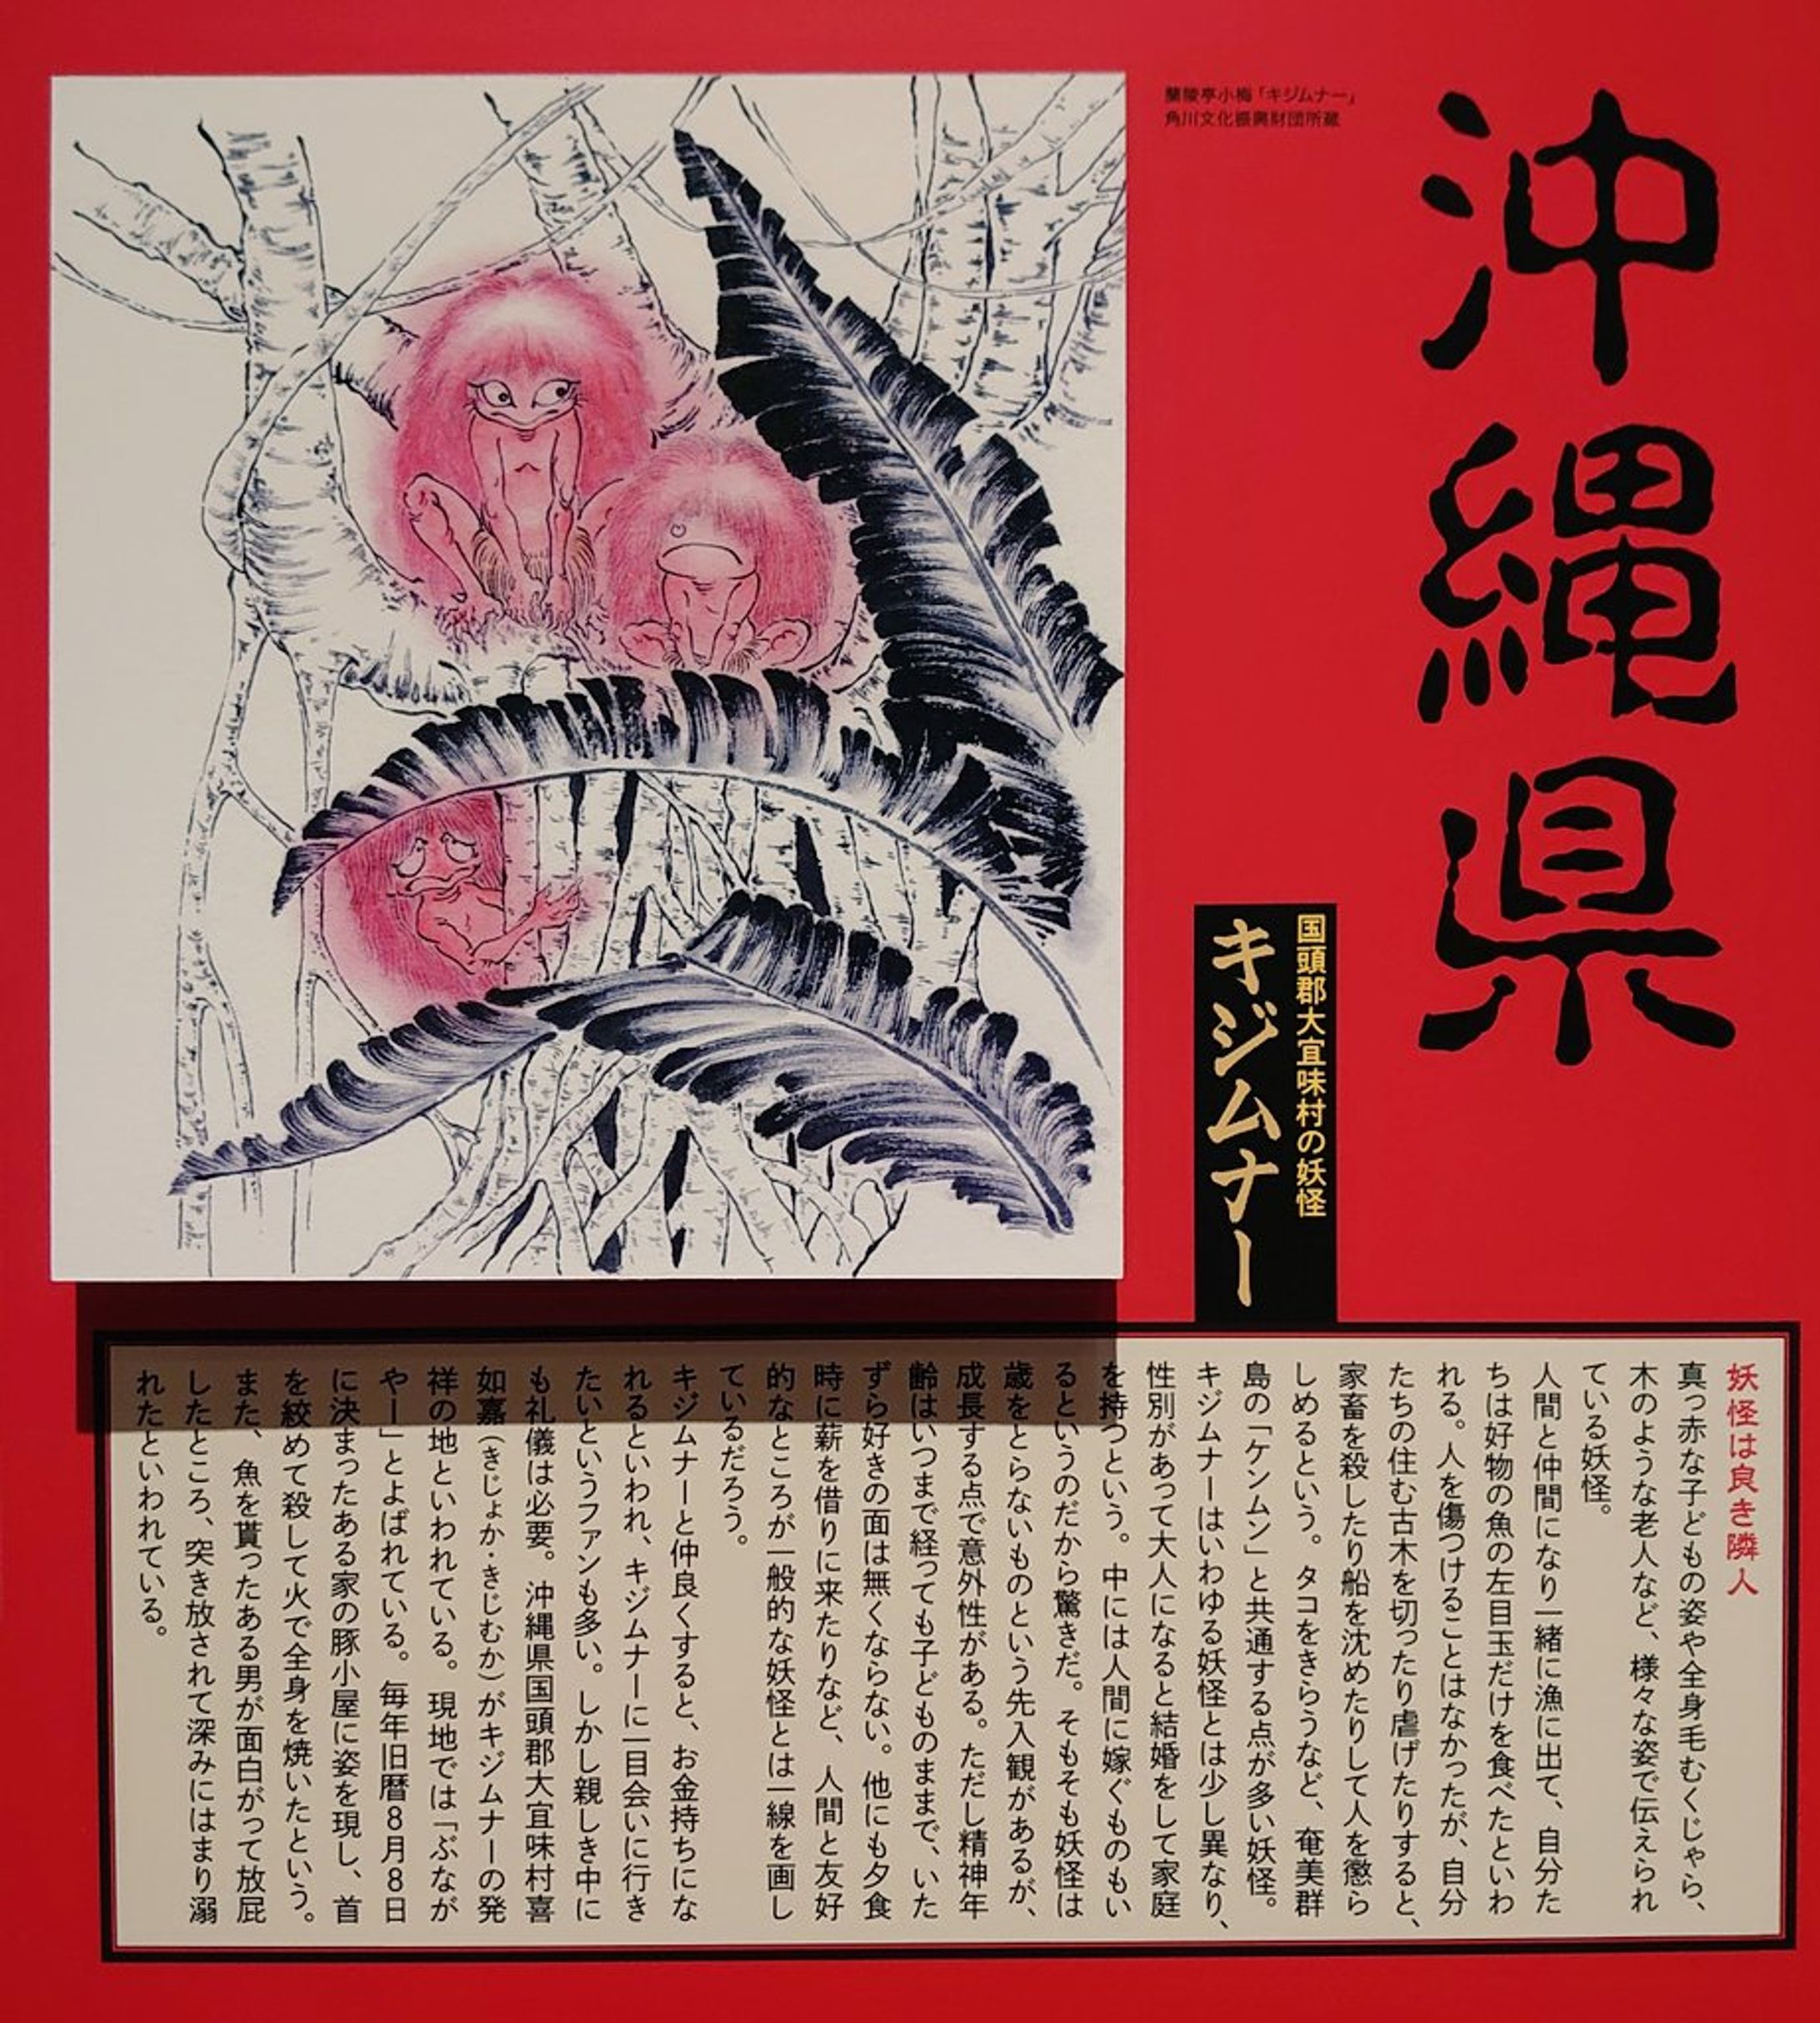 沖縄県
蘭陵亭小梅「キジムナー」
角川文化振興財団所蔵
国頭郡大宜味村の妖怪
キジムナー
妖怪は良き隣人
真っ赤な子どもの姿や全身毛むくじゃら、
木のような老人など、様々な姿で伝えられ
ている妖怪。
人間と仲間になり一緒に漁に出て、自分た
ちは好物の魚の左目玉だけを食べたといわ
れる。人を傷つけることはなかったが、自分
たちの住む古木を切ったり虐げたりすると、
家畜を殺したり船を沈めたりして人を懲ら
しめるという。タコをきらうなど、奄美群
島の「ケンムン」と共通する点が多い妖怪。
キジムナーはいわゆる妖怪とは少し異なり、
性別があって大人になると結婚をして家庭
を持つという。中には人間に嫁ぐものもい
るというのだから驚きだ。そもそも妖怪は
歳をとらないものという先入観があるが、
成長する点で意外性がある。ただし精神年
齢はいつまで経っても子どものままで、いた
ずら好きの面は無くならない。他にも夕食
時に薪を借りに来たりなど、人間と友好
的なところが一般的な妖怪とは一線を画し
ているだろう。
キジムナーと仲良くすると、お金持ちにな
れるといわれ、キジムナーに一目会いに行き
たいというファンも多い。しかし親しき中に
も礼儀は必要。沖縄県国頭郡大宜味村喜
如嘉（きじょか・きじむか）がキジムナーの発
祥の地といわれている。現地では「ぶなが
やー」とよばれている。毎年旧暦8月8日
に決まったある家の豚小屋に姿を現し、首
を絞めて殺して火で全身を焼いたという。
また、魚を貰ったある男が面白がって放屁
したところ、突き放されて深みにはまり溺
れたといわれている。